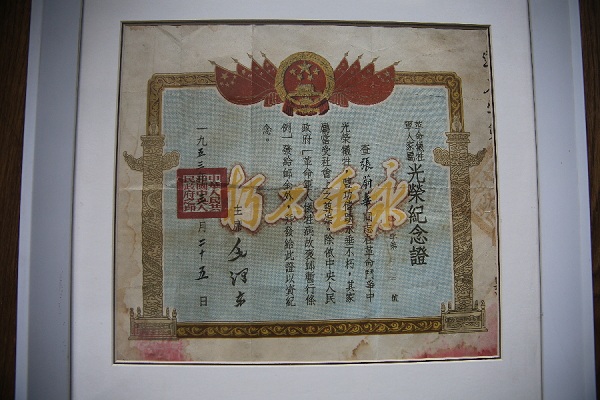 革命犧牲
軍人家屬
光榮紀念證
號
查張
同志在革命鬥爭中
光榮犧牲
垂不朽,其家
屬當受社會上之尊崇。除依中央人民
政府「革命軍人犧牲病故褒恤暫行條
例」發給恤金外,並發給此證以資紀
念。
主席
毛澤東
一九五三年
月二十五日
永垂不朽